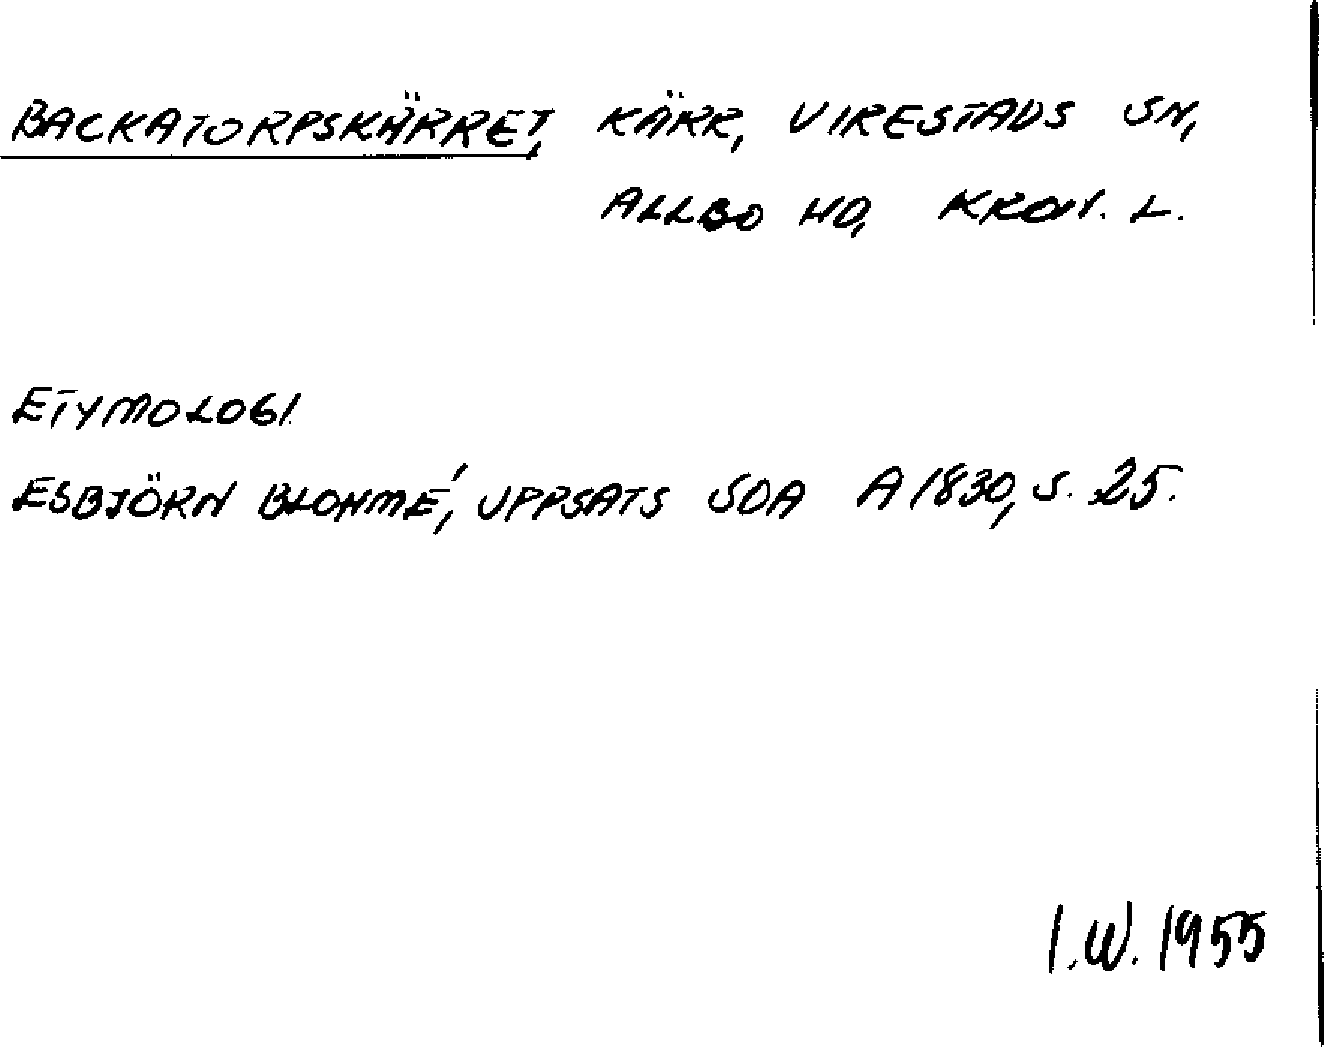 BACKATORPSKÄRRET, KÄRR, VIRESTADS SN,
ALLBO HD, KRON. L.
ETYMOLOGI.
ESBJÖRN BLOHMÉ, UPPSATS SOA A 1830, S. 25.
I.W. 1955